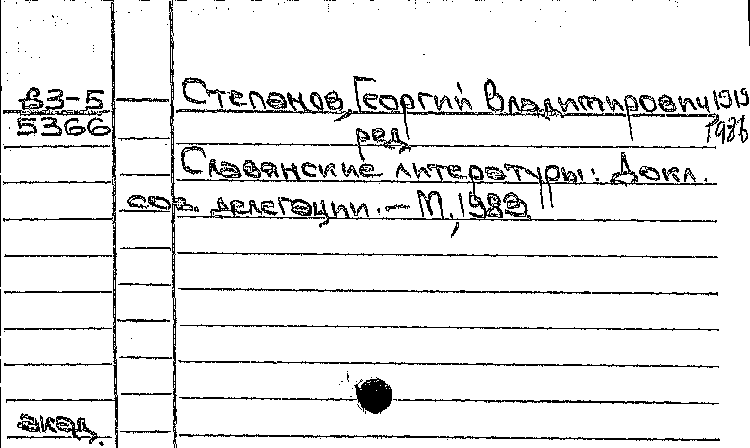 В3-5
5366
Степанов, Георгий Владимирович 1919
1986
ред.
Славянские литературы: Докл.
сов. делегации. – М., 1983
акад.